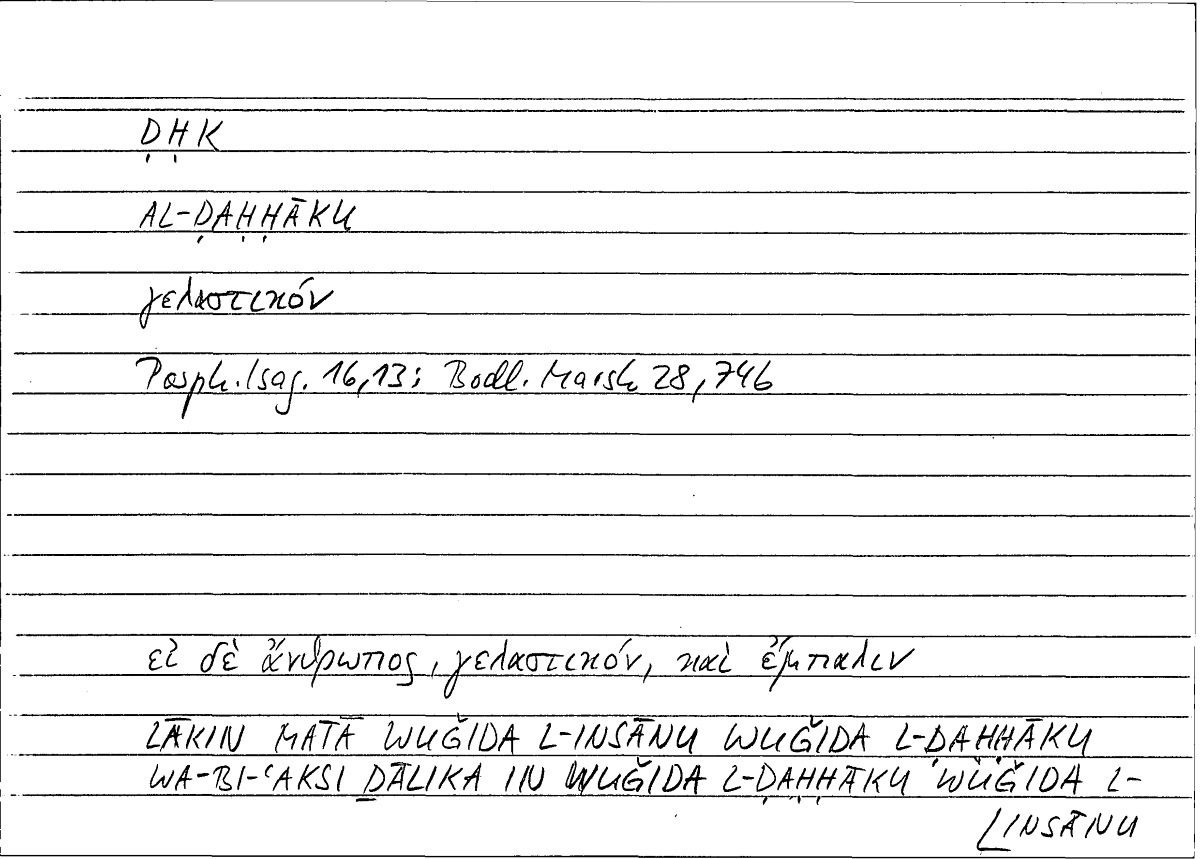 ḌḤK
AL-ḌAḤḤĀKU
γελαστικόν
Porph. Isag. 16,13; Bodl. Marsh 28,74b
εἰ δὲ ἄνθρωπος, γελαστικόν, καὶ ἔμπαλιν
LĀKIN MATĀ WUǦIDA L-INSĀNU WUǦIDA L-ḌAḤḤĀKU
WA-BI-ʿAKSI ḎĀLIKA IN WUǦIDA L-ḌAḤḤĀKU WUǦIDA L-
INSĀNU